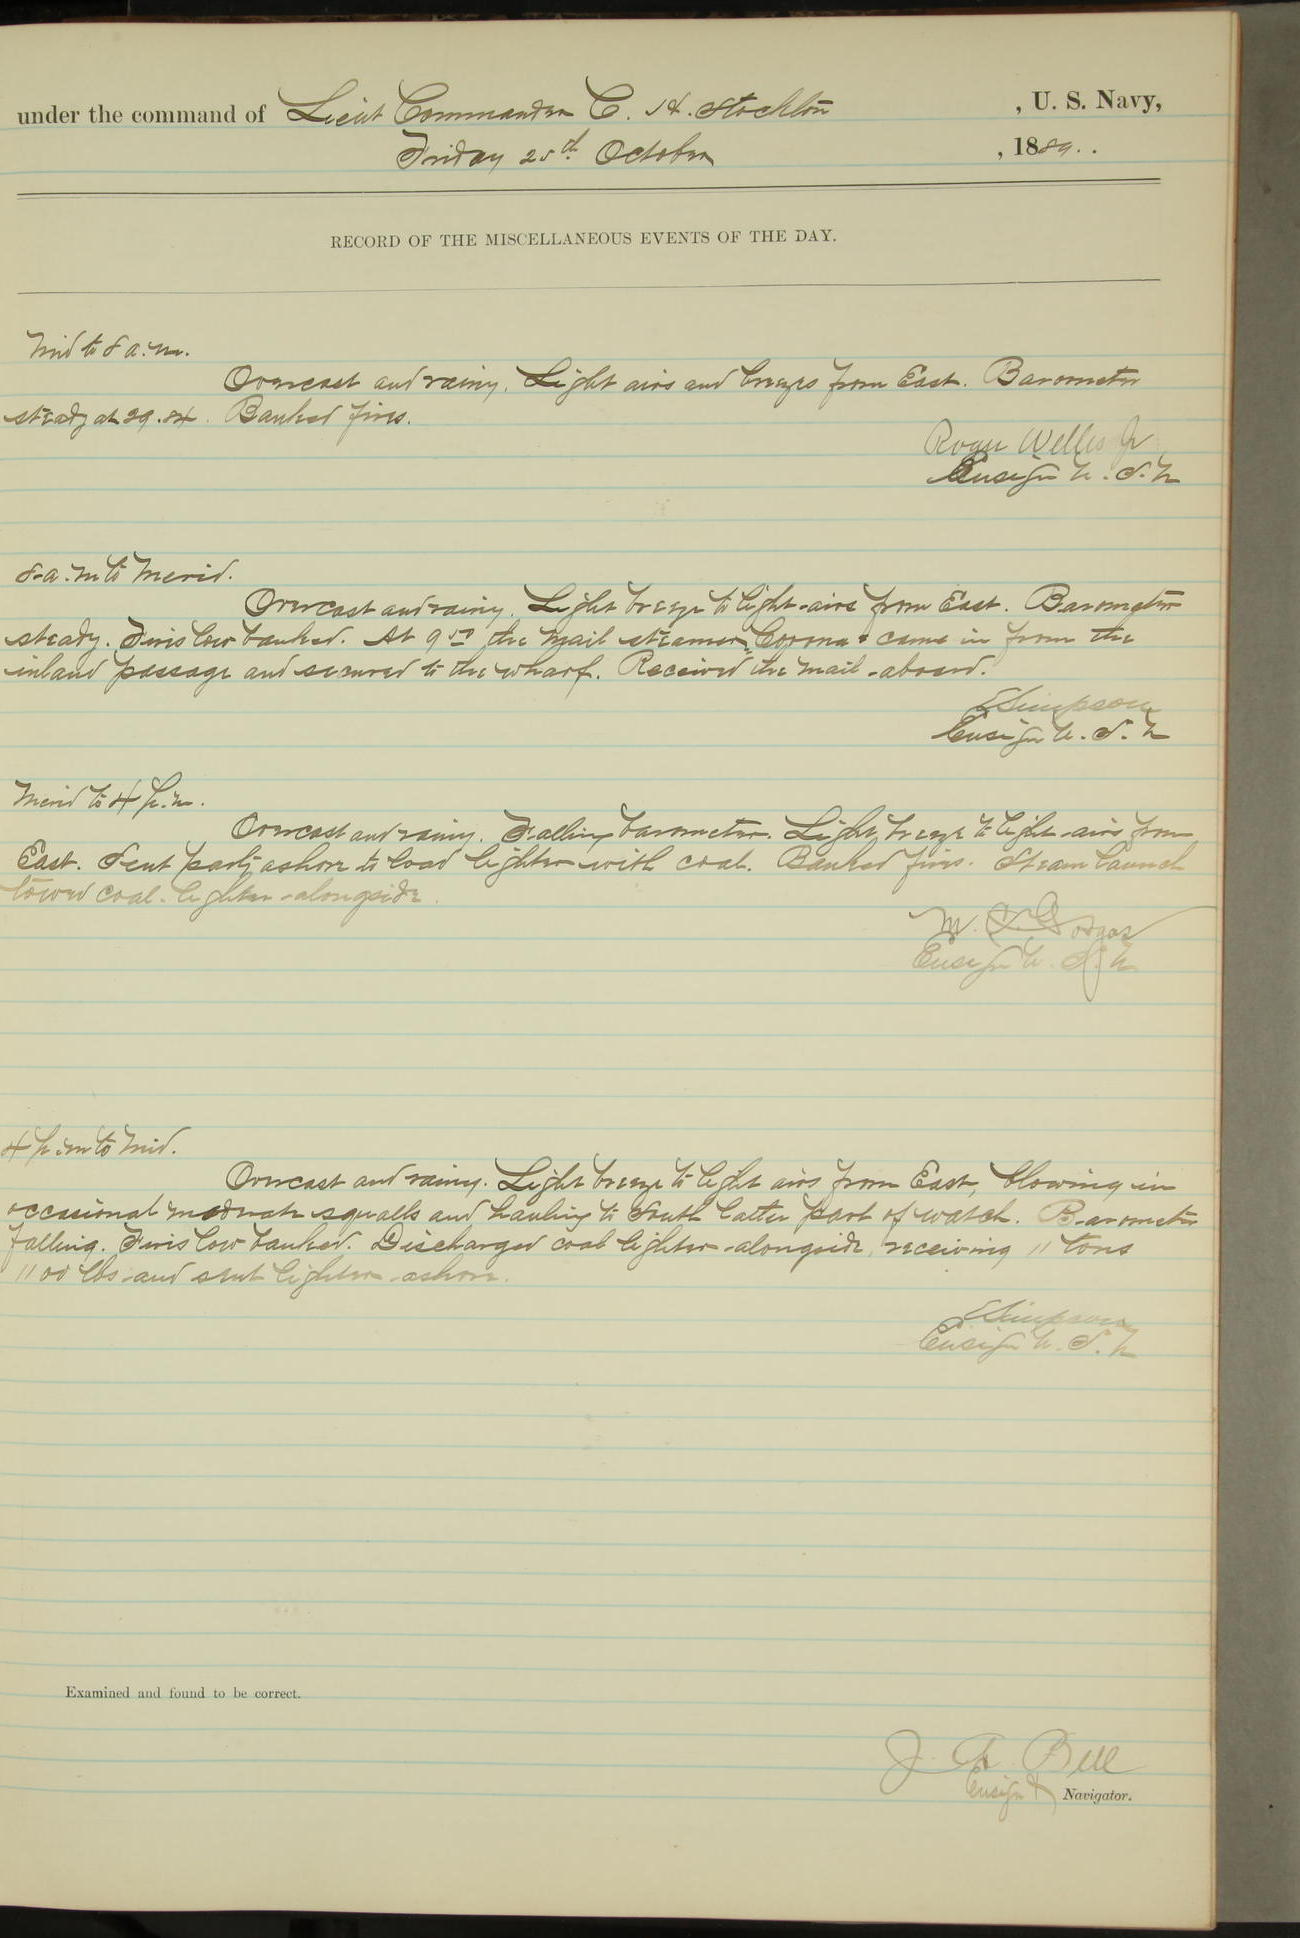 under the command of Lieut Commander C. H. Stockton, U. S. Navy,
Friday 25th October, 1889.
RECORD OF THE MISCELLANEOUS EVENTS OF THE DAY.
Mid to 8 a.m.
Overcast and rainy. Light airs and breezes from East. Barometer
steady at 29.84. Banked fires.
Roger Welles Jr
Ensign U.S.N
8 a.m to Merid.
Overcast and rainy. Light breeze to light airs from East. Barometer
steady. Fires low banked. At 9 the mail steamer "Corona" came in from the
inland passage and secured to the wharf. Received the mail aboard.
E Simpson
Ensign U.S.N
Merid to 4 p.m.
Overcast and rainy. Falling barometer. Light breeze to light airs from
East. Sent party ashore to load lighter with coal. Banked fires. Steam launch
towed coal lighter alongside.
M. Gorgas
Ensign U.S.N
4 p.m to Mid.
Overcast and rainy. Light breeze to light airs from East, blowing in
occasional moderate squalls and hauling to South latter part of watch. Barometer
falling. Fires low banked. Discharged coal lighter alongside, receiving 11 tons
1100 lbs and sent lighter ashore.
E Simpson
Ensign U.S.N
Examined and found to be correct.
J. Bell
Ensign & Navigator.